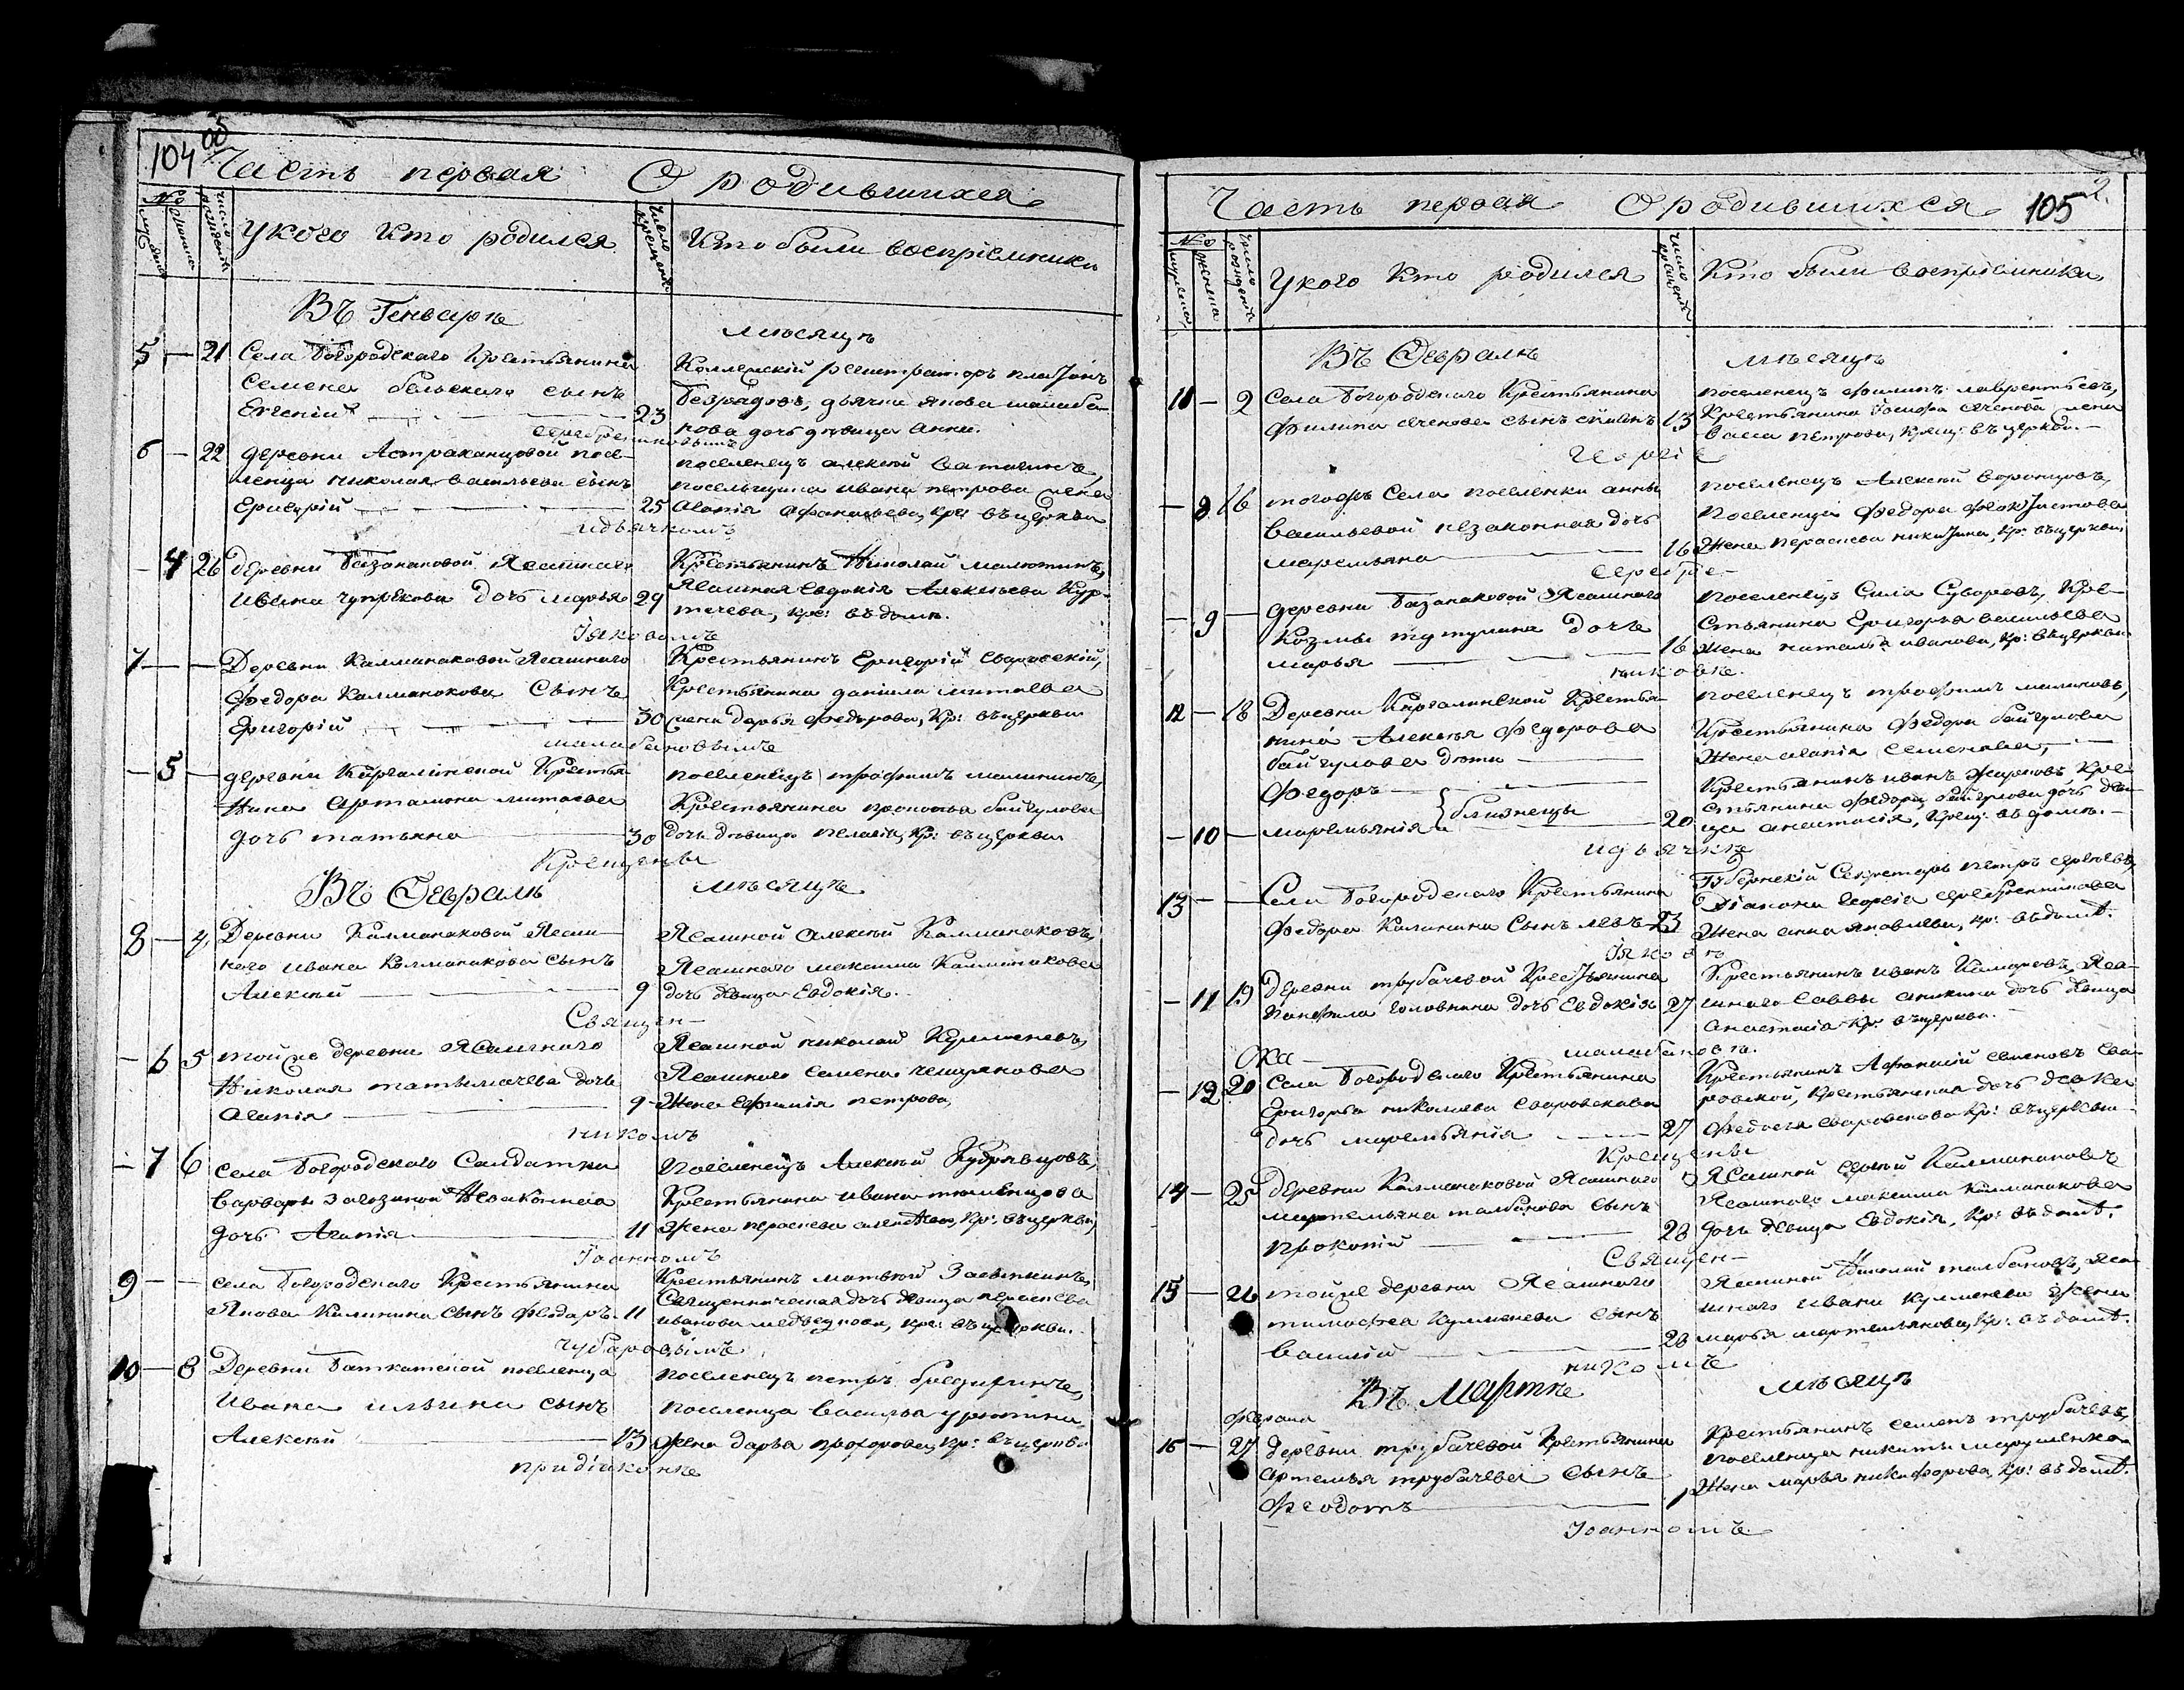 104 об
Часть первая О родившихся
№
мужеска
женска
число рождения
У кого кто родился
число крещения
Кто были восприемники
Въ Генваре месяце
5 — 21 Села Богородскаго Крестьянина
Семена бельскаго сынъ
Евгений 23
Коллежский регистраторъ платонъ
Безрядовъ, дьячка якова малаба-
нова дочь девица анна.
серебренниковымъ
6 — 22 деревни Астраханцовой посе-
ленца николая васильева сынъ
Григорий 25
поселенец алексей
поселыцика ивана петрова жена
агапия афанасьева, кре: въ церкви
и дьячкомъ
— 4 26 Деревни Базанаковой Ясашнаго
ивана чупрекова дочь марья 29
Крестьянинъ Николай малютинъ,
Ясашная евдокия Алексьева Кур-
тегева, кре: въ доме.
Иаковомъ
7 — — Деревни Калманаковой Ясашнаго
федора Калманакова Сынъ
Григорий 30
Крестьянинъ Григорий сваровский,
Крестьянина данила митаева
жена дарья федорова, Кр: въ церкви
малабановымъ
— 5 — деревни Каргалинской Кресть-
янина Артамона митаева
дочь татьяна 30
поселенецъ трофимъ малининъ,
Крестьянина прокопья байгулова
дочь девица пелагия, Кр: въ церкви
Крещены
Въ Феврале месяце
8 — 4 Деревни Калманаковой Ясаш-
наго ивана Калманакова сынъ
Алексей 9
Ясашной алексей Калманаковъ,
Ясашнаго максима Калманакова
дочь девица Евдокия.
Священ-
— 6 5 той же деревни Ясашнаго
Николая татымачева дочь
агапия 9
Ясашной николай Кулменевъ,
Ясашнаго семена чещукова
Жена Ефимия петрова,
никомъ
— 7 6 села Богородскаго Салдатки
варвары загозиной Незаконная
дочь Агапия 11
Поселенецъ Алексей Кудрявцовъ,
Крестьянина ивана тюменцова
Жена параскева Кр: въ церкви,
Иоанномъ
9 — — села Богородскаго Крестьянина
Якова Калинина сынъ федоръ 11
Крестьянинъ матвей Засыпкинъ,
Священническая дочь девица параскева
иванова медведкова, кре: въ церкви.
чубаровымъ
10 — 8 Деревни Баткатской поселенца
ивана ильина сынъ
Алексей 13
поселенецъ петръ бредихинъ,
поселенца василья урютина
Жена дарья прохорова, кр: въ церкви
при диаконе
2.
Часть первая О родившихся 105
№
мужеска
женска
число рождения
У кого кто родился
число крещения
Кто были восприемники
Въ Феврале месяце
11 — 2 Села Богородскаго Крестьянина
филипа сеченова сынъ симонъ 13
поселенецъ филипъ лаврентьевъ,
Крестьянина иосифа сеченова жена
васса петрова, крещ: въ церкви. —
Георгие
— 8 16 того же Села поселенки анны
Васильевой незаконная дочь
маремьяна 16
поселенецъ Алексей воронцовъ,
Поселенца федора феоктистова
Жена параскева никитина, кр: въ церкви.
серебре-
— 9 — деревни Базанаковой Ясашнаго
Козмы тутулина дочь
марья 16
поселенецъ Сила Суворовъ, Кре-
стьянина Григорья васильева
Жена наталья иванова, кр: въ церкви
никове.
12 — 18 Деревни Каргалинской Кресть-
нина Алексея федорова
байгулова дети
федоръ
— 10 — маремьяния } близнецы 20
поселенецъ трофимъ малиновъ,
Крестьянина федора байгулова
Жена агапия семенова,
Крестьянинъ иванъ Жарковъ, Кре-
стьянина федора байгулова дочь деви-
ца анастасия, Крещ: въ доме. —
и дьячке
13 — — Села Богородскаго Крестьянина
федора Калинина Сынъ левъ 23
Губернский Секретарь петръ сергеевъ,
Диакона георгия серебренникова
Жена анна яковлева, кр: въ доме.
Иаковъ
— 11 19 Деревни трубачевой Крестьянина
панфила головнина дочь Евдокия 27
Крестьянинъ иванъ Камаровъ, Яса-
шнаго саввы аникина дочь девица
анастасиа кр: въ церкви. —
малабанове.
— 12 20 Села Богородскаго Крестьянина
Григорья николаева сваровскаго
дочь маремьяния 27
Крестьянинъ Афанасий семеновъ сва-
ровской, Крестьянская дочь девка
федосья сваровскова кр: въ церкви
Крещены
14 — 25 деревни Калманаковой Ясашнаго
мартемьяна талбанова сынъ
Прокопий 28
Ясашной сергей Калманаковъ
Ясашнаго максима Калманакова
дочь девица Евдокия, Кр: въ доме.
Священ-
15 — 26 той же деревни Ясашнаго
тимофея Кулменева сынъ
Василий 28
Ясашной Николай талбановъ, яса-
шнаго ивана кулменева Жена
марья мартемьянова, Кр: въ доме.
никомъ
Въ Марте месяце
февраля
16 — 27 деревни трубачевой Крестьянина
артемья трубачева сынъ
Феодотъ 1
Крестьянинъ семенъ трубачевъ,
поселенца никиты марущенка
Жена марья никифорова, Кр: въ доме.
Иоанномъ